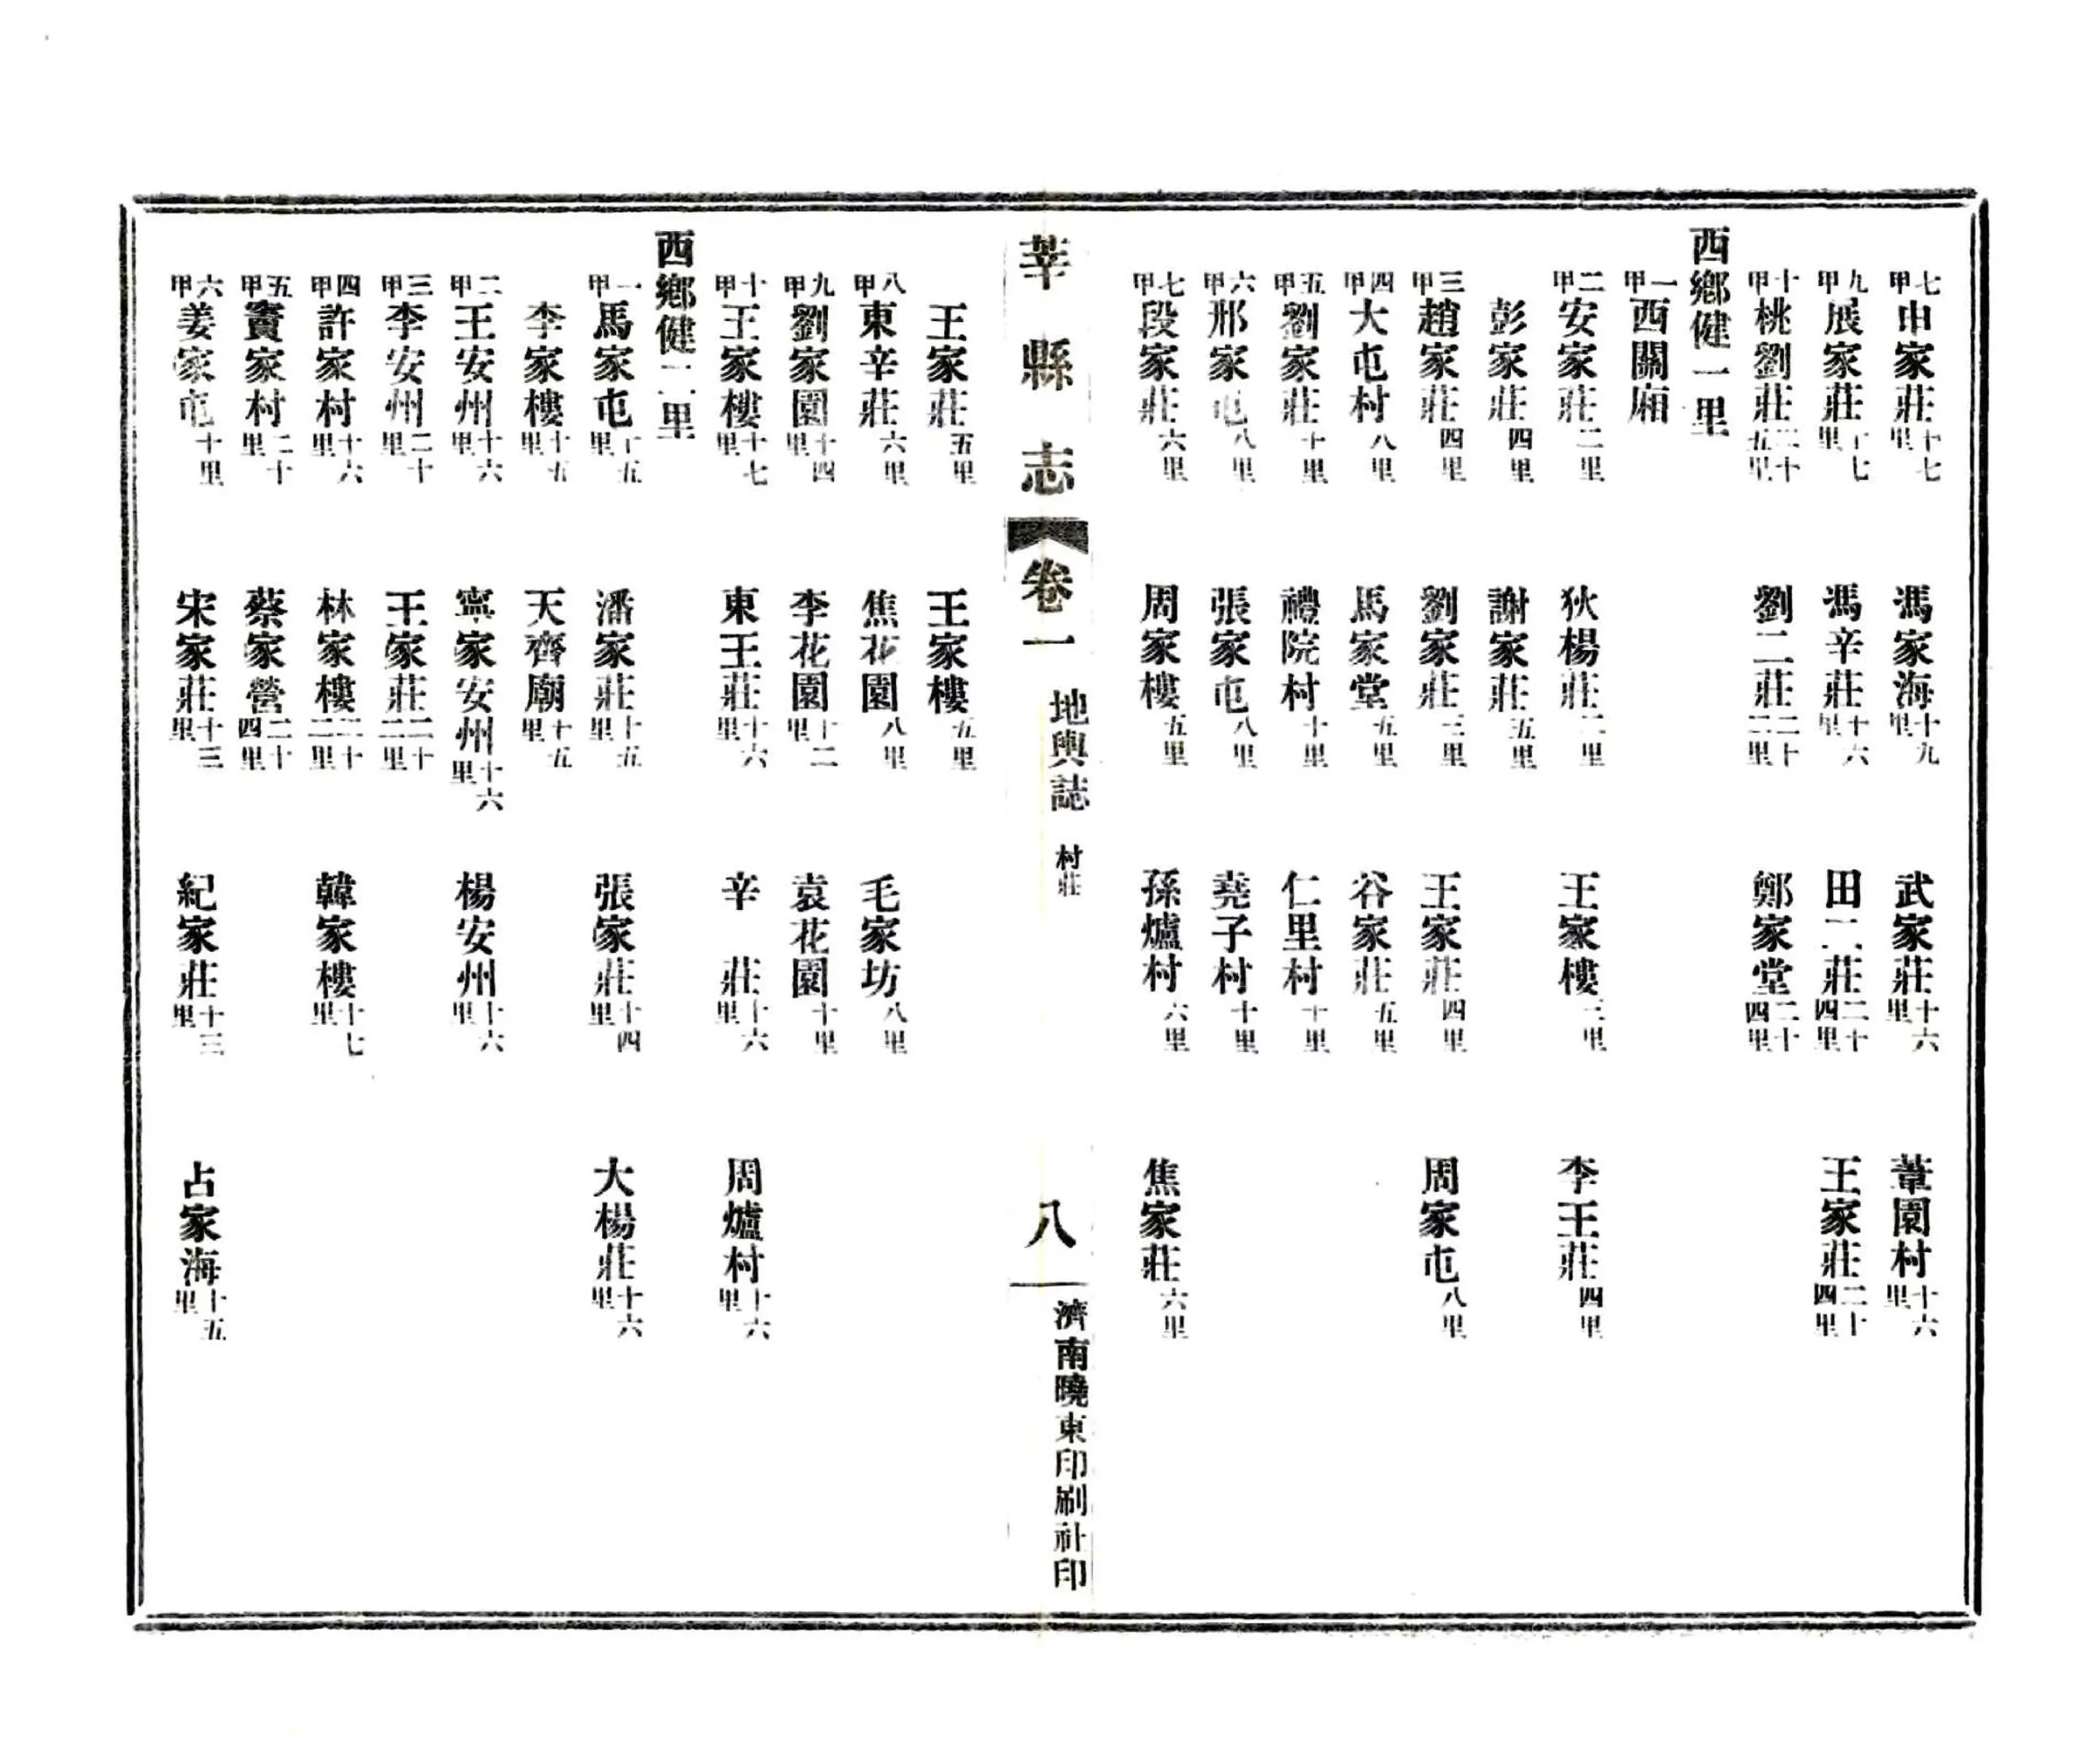 七甲申家莊十七里　馮家海十九里　武家莊十六里　葦園村十六里
九甲展家莊十七里　馮辛莊十六里　田二莊二十四里　王家莊二十四里
十甲桃劉莊二十五里　劉二莊二十二里　鄭家堂二十四里
西鄉健一里
一甲西關廂
二甲安家莊二里　狄楊莊二里　王家樓三里　李王莊四里
彭家莊四里　謝家莊五里
三甲趙家莊四里　劉家莊三里　王家莊四里　周家屯八里
四甲大屯村八里　馬家堂五里　谷家莊五里
五甲劉家莊十里　禮院村十里　仁里村十里
六甲邢家屯八里　張家屯八里　堯子村十里
七甲段家莊六里　周家樓五里　孫爐村六里　焦家莊六里
莘縣志　卷一　地輿誌　村莊　八　濟南曉東印刷社印
王家莊五里　王家樓五里
八甲東辛莊六里　焦花園八里　毛家坊八里
九甲劉家園十四里　李花園十二里　袁花園十里
十甲王家樓十七里　東王莊十六里　辛莊十六里　周爐村十六里
西鄉健二里
一甲馬家屯十五里　潘家莊十五里　張家莊十四里　大楊莊十六里
李家樓十五里　天齊廟十五里
二甲王安州十六里　寧家安州十六里　楊安州十六里
三甲李安州二十里　王家莊二十二里
四甲許家村十六里　林家樓二十二里　韓家樓十七里
五甲竇家村二十里　蔡家營二十四里
六甲姜家屯十里　宋家莊十三里　紀家莊十三里　占家海十五里